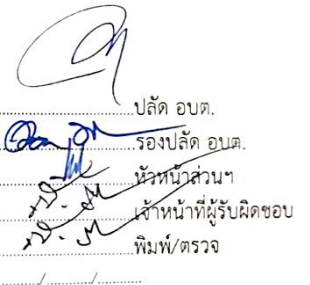 ปลัด อบต.
รองปลัด อบต.
หัวหน้าส่วนฯ
เจ้าหน้าที่ผู้รับผิดชอบ
พิมพ์/ตรวจ
............/............/............